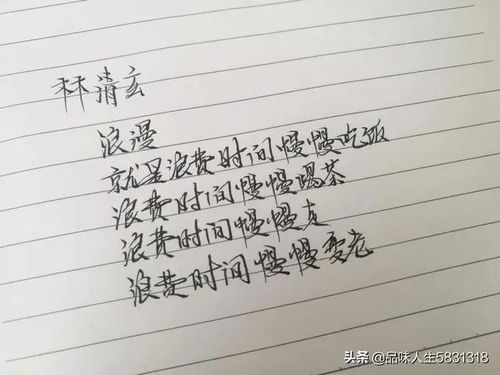 林清玄
浪漫
就是浪费时间慢慢吃饭
浪费时间慢慢喝茶
浪费时间慢慢走
浪费时间慢慢变老
头条 @品味人生5831318